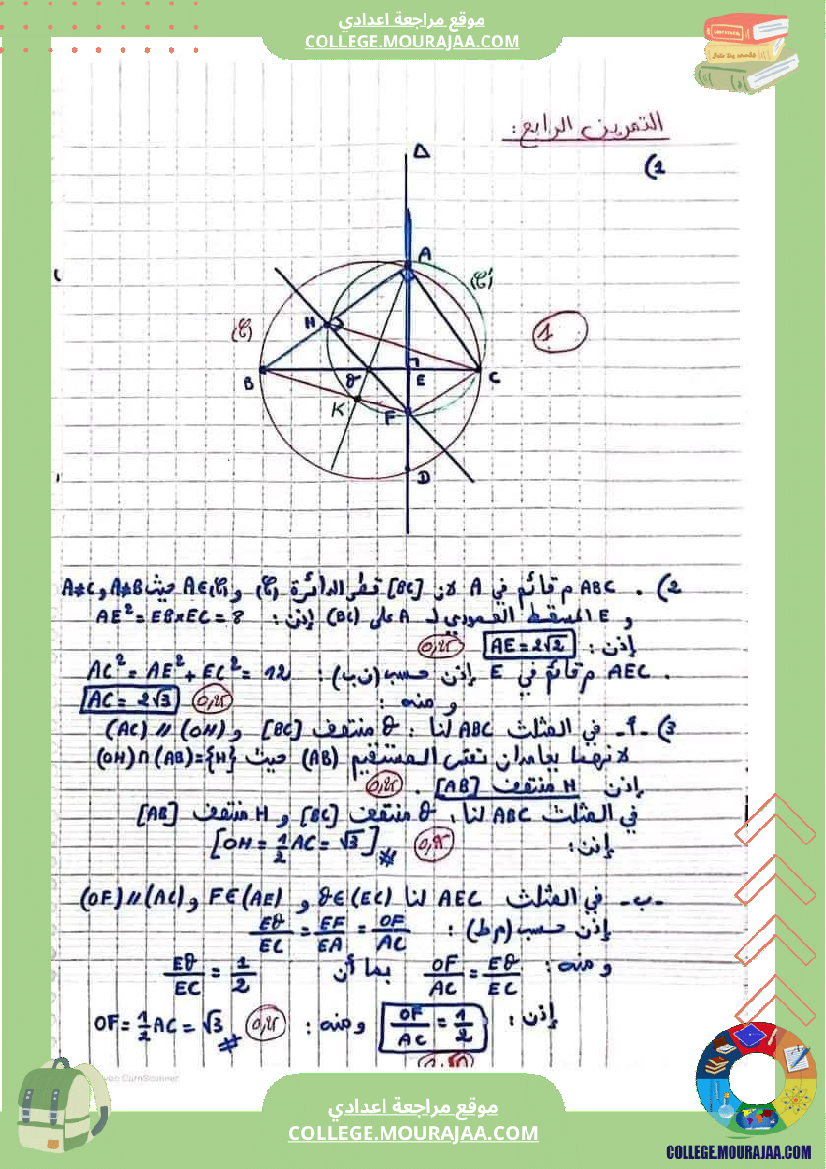 موقع مراجعة اعدادي
COLLEGE.MOURAJAA.COM
التمرين الرابع:
1)
Δ
A
(𝒞')
H
(𝒞)
1
B
O
E
C
K
F
D
2) . ABC م قائم في A لان [BC] قطر الدائرة (𝒞) و A∈(𝒞) حيث A≠B و A≠C
و E المسقط العمودي لـ A على (BC) إذن: AE² = EB×EC = 8
إذن: AE = 2√2 0,25
. AEC م قائم في E إذن حسب (ن ب): AC² = AE² + EC² = 12
و منه: AC = 2√3 0,25
3) - أ - في المثلث ABC لنا: O منتصف [BC] و (OH) // (AC)
لانهما يعامدان نفس المستقيم (AB) حيث (OH)∩(AB)={H}
إذن H منتصف [AB]. 0,25
في المثلث ABC لنا، O منتصف [BC] و H منتصف [AB]
إذن: [OH = 1/2 AC = √3] 0,25
- ب - في المثلث AEC لنا O∈(EC) و F∈(AE) و (OF)//(AC)
إذن حسب (م ط): EO/EC = EF/EA = OF/AC
و منه: OF/AC = EO/EC بما أن EO/EC = 1/2
إذن: OF/AC = 1/2 و منه: OF = 1/2 AC = √3 0,25
CamScanner
موقع مراجعة اعدادي
COLLEGE.MOURAJAA.COM
COLLEGE.MOURAJAA.COM